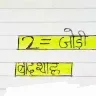 2 = जोड़ी
बादशाह